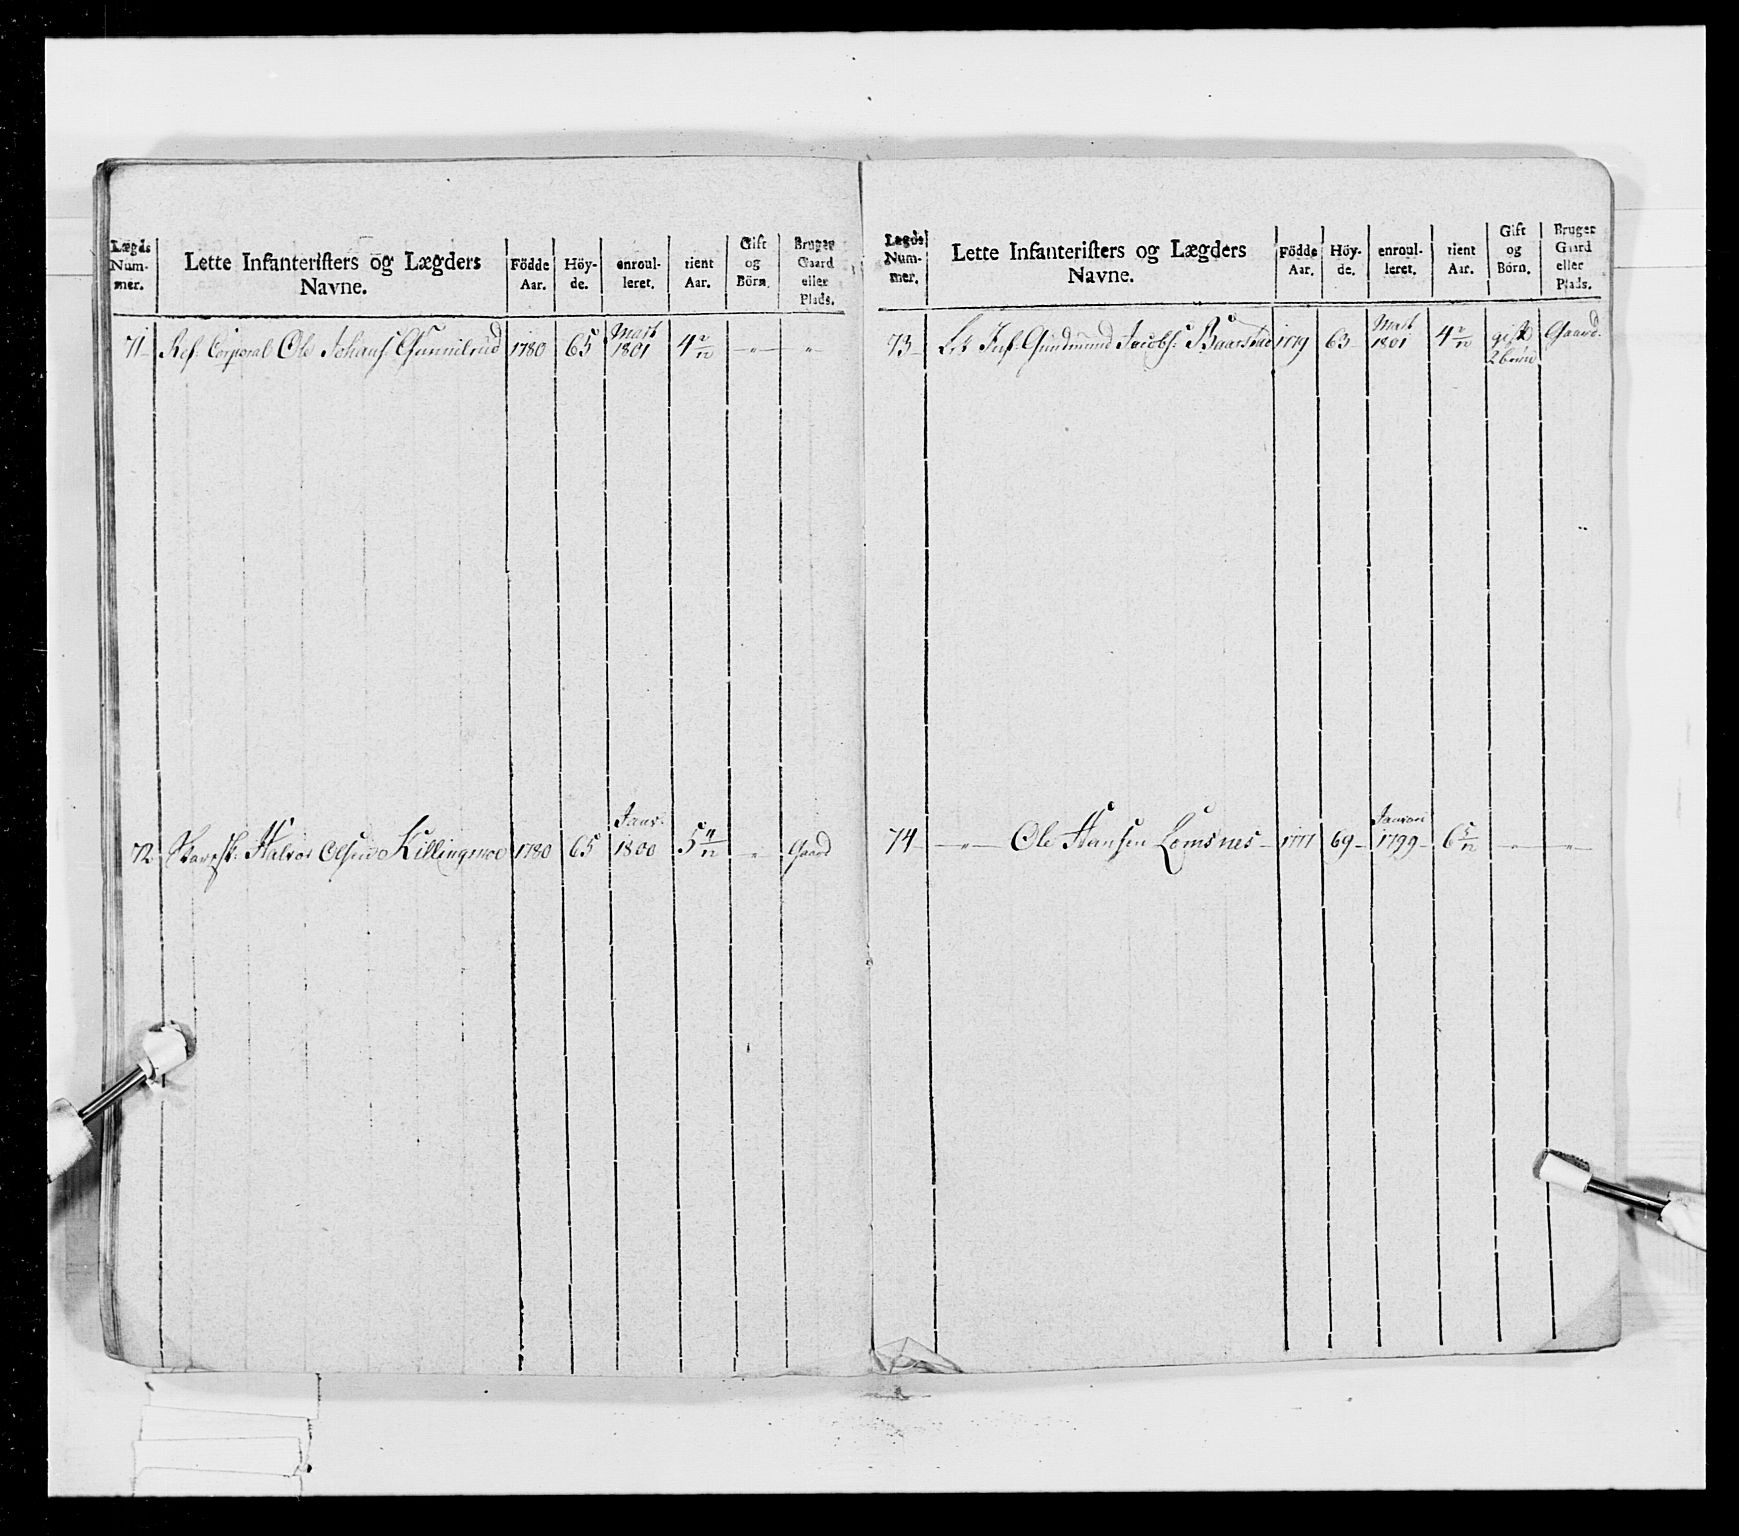 Lægds Num- mer. | Lette Infanteristers og Lægders Navne. | Födde Aar. | Höy- de. | enroul- leret. | tient Aar. | Gift og Börn. | Bruger Gaard eller Plads.
71 Ref. Corporal Ole Johans: Gunnilrud 1780 65 Mart 1801 4 2/12 —„— „
72 Skarpsk: Halvor Olsen Killingmoe 1780 65 Janr. 1800 5 4/12 „ Gaard
Lægds Num- mer. | Lette Infanteristers og Lægders Navne. | Födde Aar. | Höy- de. | enroul- leret. | tient Aar. | Gift og Börn. | Bruger Gaard eller Plads.
73 Let Inf. Gudmund Jacobs: Baarstad 1779 63 Mart 1801 4 2/12 gift 2 börn Gaard.
74 —„— Ole Hansen Lomsnes 1771 69 Januari 1799 6 5/12 —„— —„—